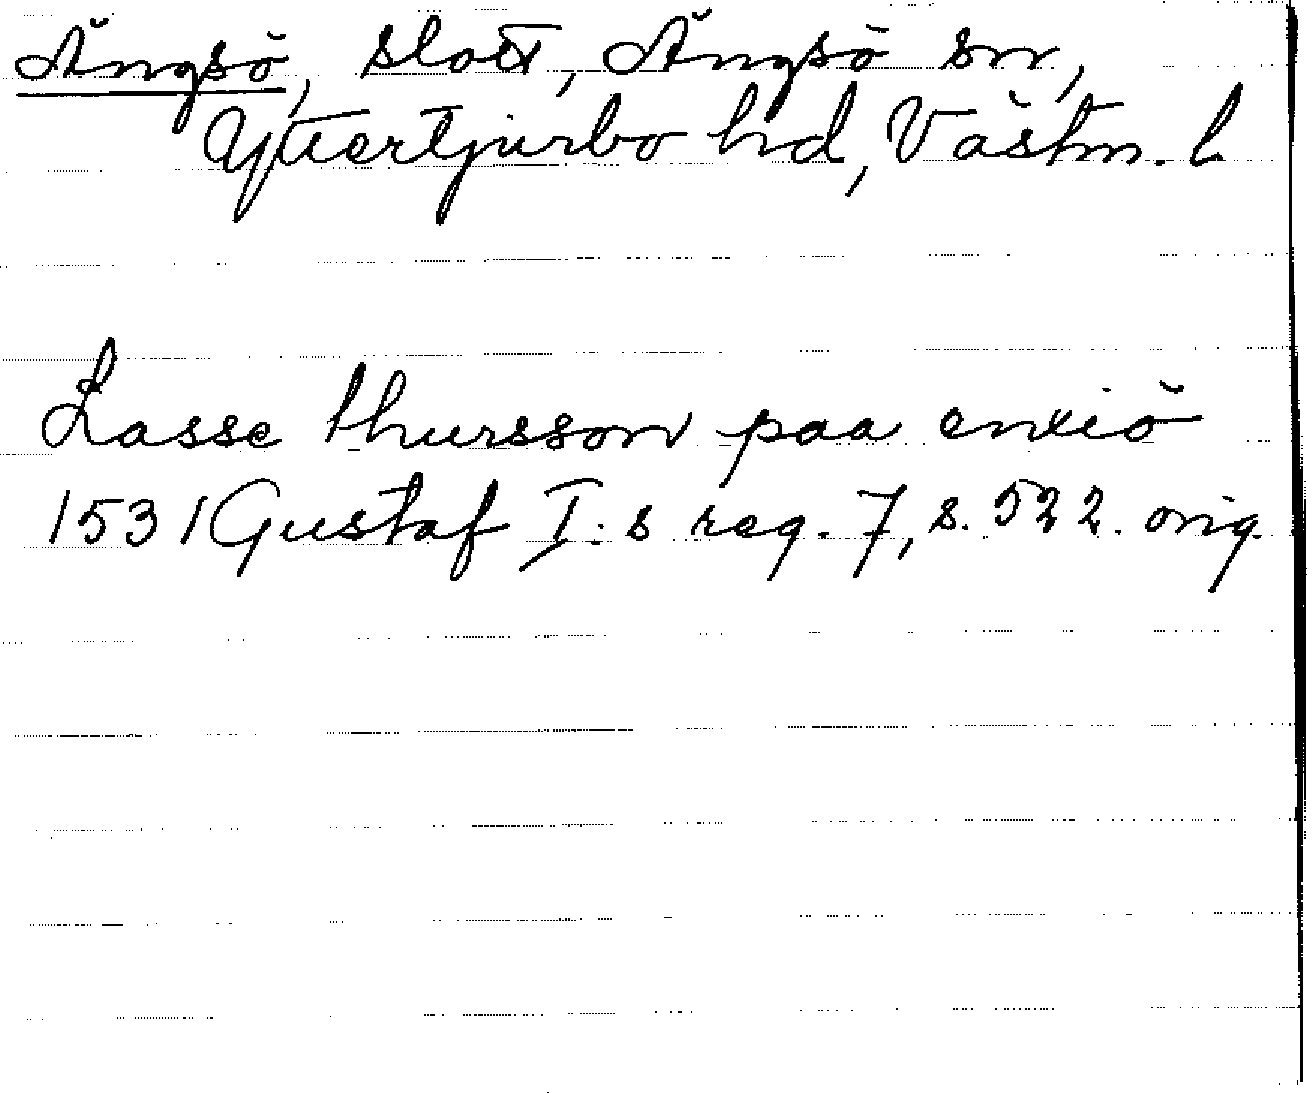 Ängsö, slott, Ängsö sn,
Yttertjurbo hd, Västm. l
Lasse thursson paa enxiö
1531 Gustaf I:s reg. 7, s. 522. orig.